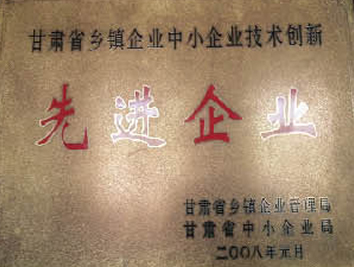 甘肃省乡镇企业中小企业技术创新
先进企业
甘肃省乡镇企业管理局
甘肃省中小企业局
二00八年元月